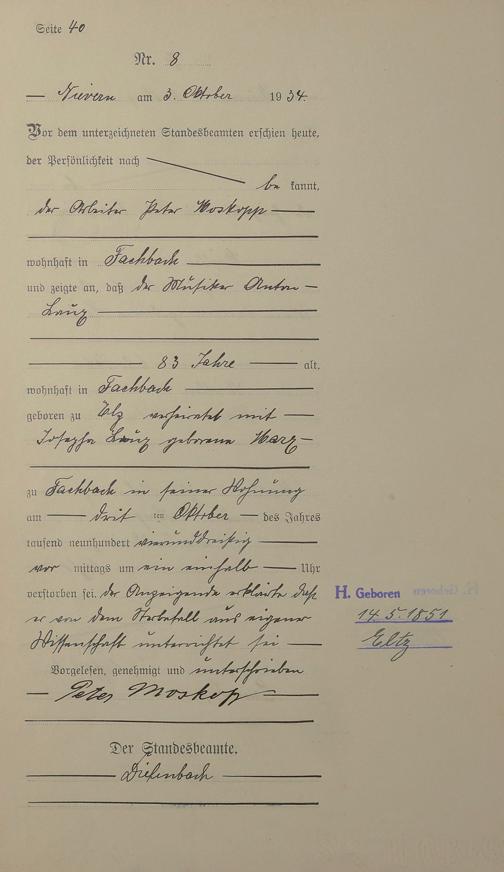 Seite 40
Nr. 8
Nievern am 3. Oktober 1934.
Vor dem unterzeichneten Standesbeamten erschien heute,
der Persönlichkeit nach
be kannt,
der Arbeiter Peter Moskopp
wohnhaft in Fachbach
und zeigte an, daß der Musiker Anton
Laux
83 Jahre alt,
wohnhaft in Fachbach
geboren zu Elz verheiratet mit
Josepha Laux geborene Marx
zu Fachbach in seiner Wohnung
am drit ten Oktober des Jahres
tausend neunhundert vierunddreißig
vor mittags um ein einhalb Uhr
verstorben sei. der Anzeigende erklärte daß
er von dem Sterbefall aus eigener
Wissenschaft unterrichtet sei
Vorgelesen, genehmigt und unterschrieben
Peter Moskopp
Der Standesbeamte.
Diefenbach
H. Geboren
14.5.1851
Eltz